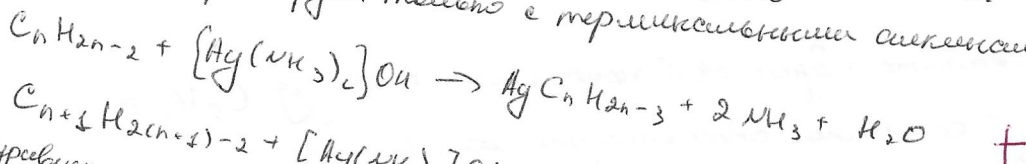 только с терминальными алкинами
CnH2n-2 + [Ag(NH3)2]OH → AgCnH2n-3 + 2NH3 + H2O
Cn+1H2(n+1)-2 + [Ag(NH
+